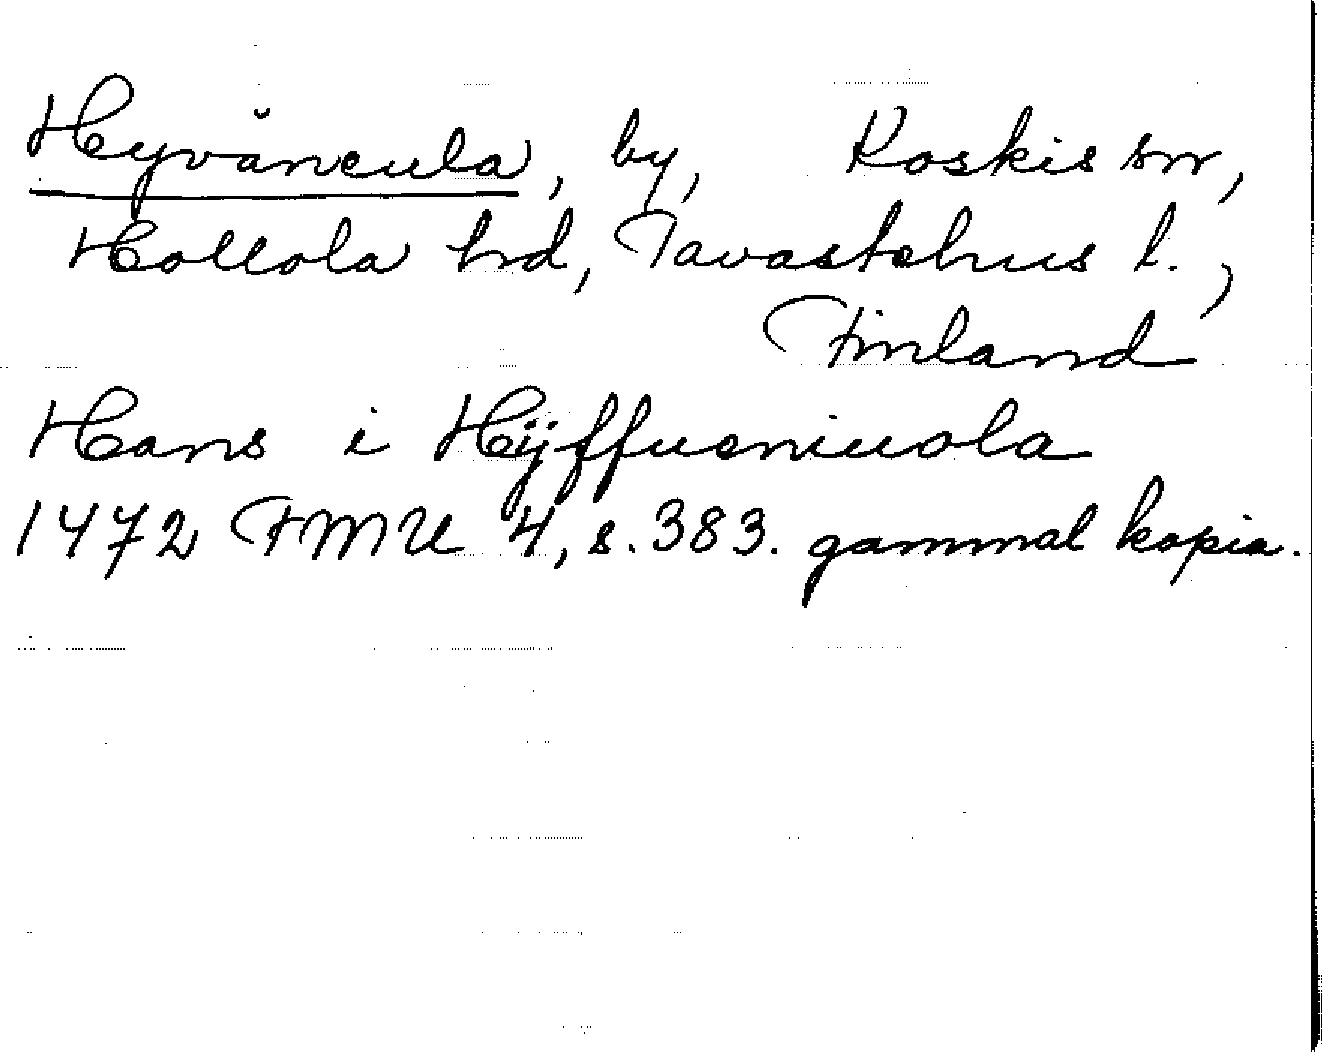 Hyväneula, by, Koskis sn,
Hollola hd, Tavastehus l.,
Finland
Hans i Hÿffueniuola
1472 FMU 4, s. 383. gammal kopia.